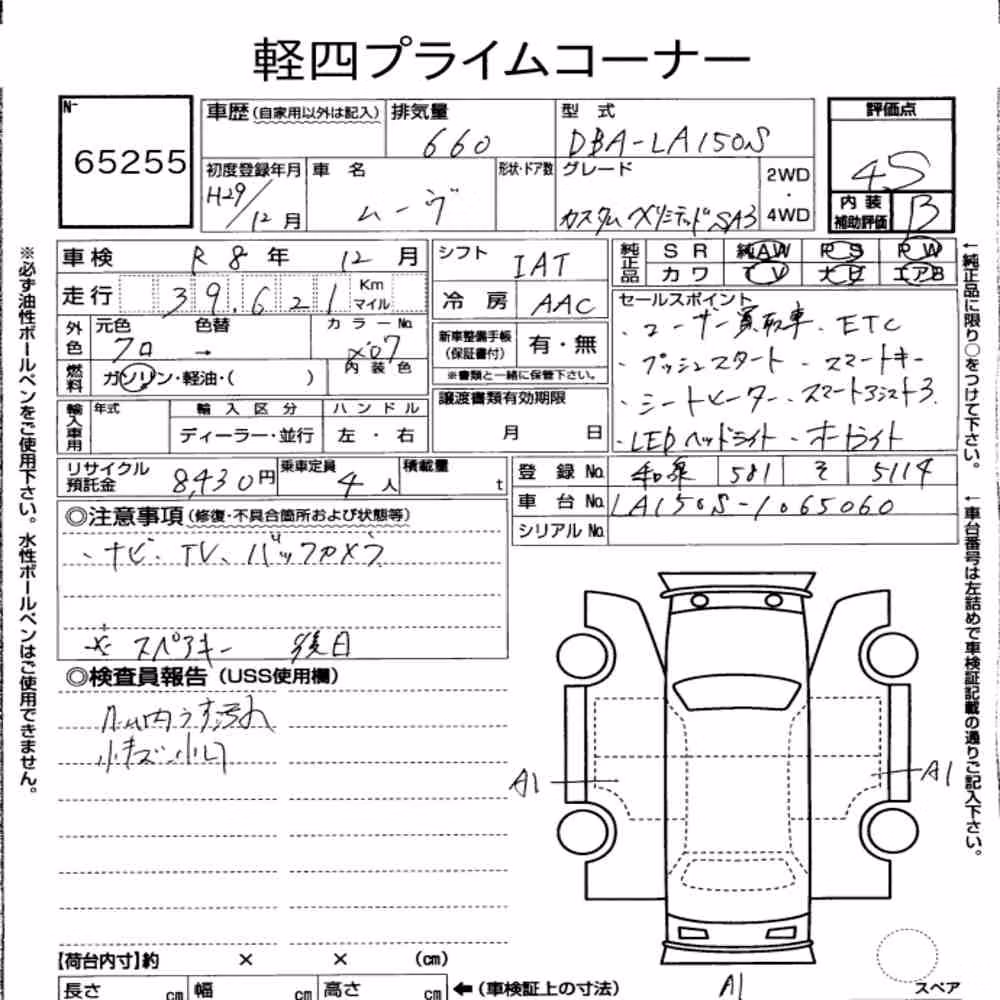 軽四プライムコーナー
No.
65255
車歴(自家用以外は記入)
排気量
660
型 式
DBA-LA150S
評価点
4.5
初度登録年月
H29/12月
車 名
ムーヴ
形状・ドア数
グレード
カスタム Xリミテッド SA3
2WD
・
4WD
内 装
補助評価
B
※必ず油性ボールペンをご使用下さい。水性ボールペンはご使用できません。
車検 R 8 年 12 月
走行 39,621 Km マイル
外色 元色 色替 カラーNo.
クロ → X07
燃料 ガソリン・軽油・( )
内装色
輸入車用 年式 輸入区分 ハンドル
ディーラー・並行 左・右
シフト IAT
冷房 AAC
新車整備手帳
(保証書付)
有・無
※書類と一緒に保管下さい。
譲渡書類有効期限
月 日
純正品 SR 純AW PS PW
カワ TV ナビ エアB
セールスポイント
・ユーザー買取車・ETC
・プッシュスタート ・スマートキー
・シートヒーター・スマートアシスト3
・LEDヘッドライト・オートライト
←純正品に限り○をつけて下さい。
リサイクル
預託金
8,430円
乗車定員
4人
積載量
t
登録No. 和泉 581 そ 5114
車台No. LA150S-1065060
シリアルNo.
←車台番号は左詰めで車検証記載の通りご記入下さい。
◎注意事項(修復・不具合箇所および状態等)
・ナビ、TV、バックカメラ
※ スペアキー 後日
◎検査員報告(USS使用欄)
内うす汚れ
小キズ・小凹
A1
A1
A1
スペア
【荷台内寸】約 × × (cm)
長さ cm 幅 cm 高さ cm ←(車検証上の寸法)